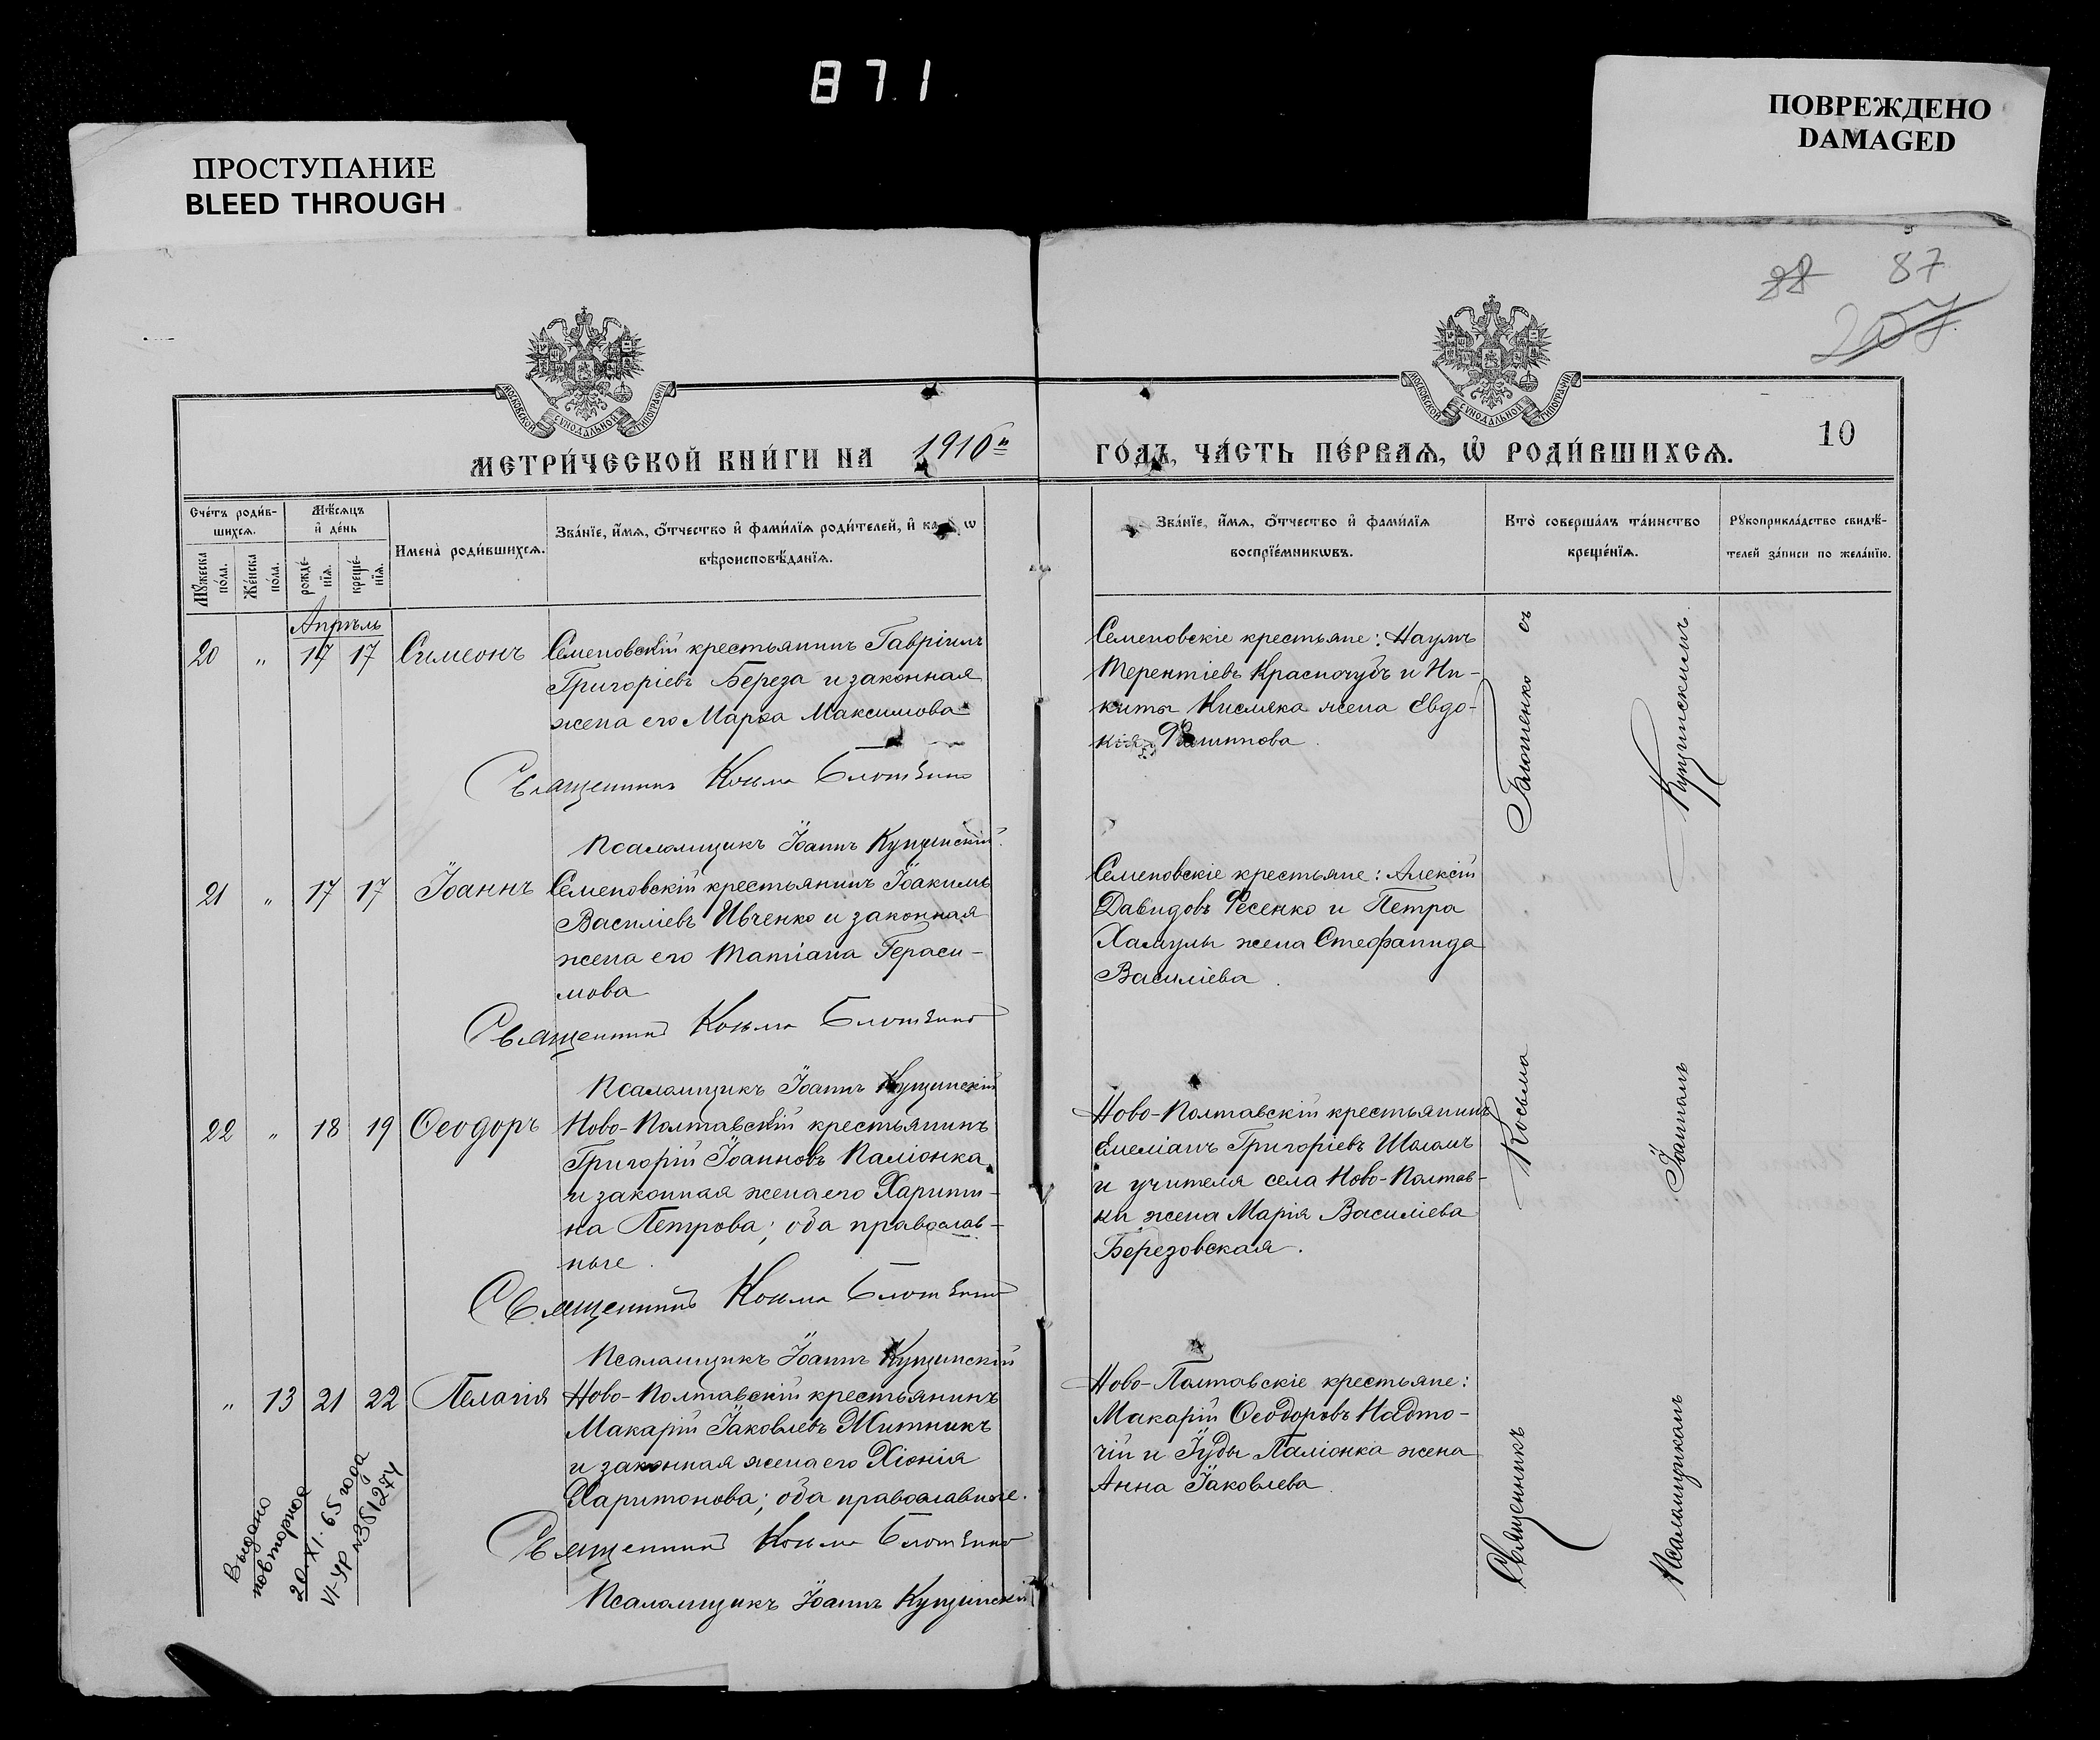 871
ПРОСТУПАНИЕ
BLEED THROUGH
ПОВРЕЖДЕНО
DAMAGED
88 87
207
МОСКОВСКОЙ СѴНОДАЛЬНОЙ ТИПОГРАФІИ
МОСКОВСКОЙ СѴНОДАЛЬНОЙ ТИПОГРАФІИ
МЕТРИ́ЧЕСКОЙ КНИ́ГИ НА 1910й ГО́ДЪ, ЧА́СТЬ ПЕ́РВАѦ, Ѡ҆ РОДИ́ВШИХСѦ.
10
Сче́тъ роди́в-
шихсѧ.
Мꙋ́жеска по́ла.
Же́нска по́ла.
Мѣ́сѧцъ
и҆ де́нь
рожде́-
нїѧ.
креще́-
нїѧ.
Имена̀ роди́вшихсѧ.
Зва́нїе, и҆́мѧ, ѻ҆́тчество и҆ фами́лїѧ роди́телей, и҆ ѡ
вѣроисповѣ́данїѧ.
Зва́нїе, и҆́мѧ, ѻ҆́тчество и҆ фами́лїѧ
воспрїе́мникѡвъ.
Кто̀ соверша́лъ та́инство
креще́нїѧ.
Рꙋкоприкла́дство свидѣ́-
телей за́писи по жела́нїю.
Апрѣль
20 „ 17 17 Симеонъ
Семеновскій крестьянинъ Гавріилъ
Григоріевъ Береза и законная
жена его Марѳа Максимова
Священникъ Косьма
Псаломщикъ Іоаннъ Купцинскій
Семеновскіе крестьяне: Наумъ
Терентіевъ Красночубъ и Ни-
киты Кисляка жена Евдо-
кія Филиппова.
21 „ 17 17 Іоаннъ
Семеновскій крестьянинъ Іоакимъ
Василіевъ Ивченко и законная
жена его Татіана Гераси-
мова
Священникъ Косьма
Псаломщикъ Іоаннъ Купцинскій
Семеновскіе крестьяне: Алексій
Давидовъ Фесенко и Петра
Хамулы жена Стефанида
Василіева.
22 „ 18 19 Ѳеодоръ
Ново-Полтавскій крестьянинъ
Григорій Іоанновъ Паліонка
и законная жена его Харити-
на Петрова; оба православ-
ные.
Священникъ Косьма
Псаломщикъ Іоаннъ Купцинскій
Ново-Полтавскій крестьянинъ
Емеліанъ Григоріевъ Шаламъ
и учителя села Ново-Полтав-
ки жена Марія Василіева
Березовская.
„ 13 21 22 Пелагія
Ново-Полтавскій крестьянинъ
Макарій Іаковлевъ Житникъ
и законная жена его Хіонія
Харитонова; оба православные.
Священникъ Косьма
Псаломщикъ Іоаннъ Купцинскій
Ново-Полтавскіе крестьяне:
Макарій Ѳеодоровъ Надто-
чій и Іуды Паліонка жена
Анна Іаковлева.
Священникъ Косьма съ
Псаломщикомъ Іоанномъ Купцинскимъ.
Выдано
повторное
20-XI. 65 года
VI-УР №351274